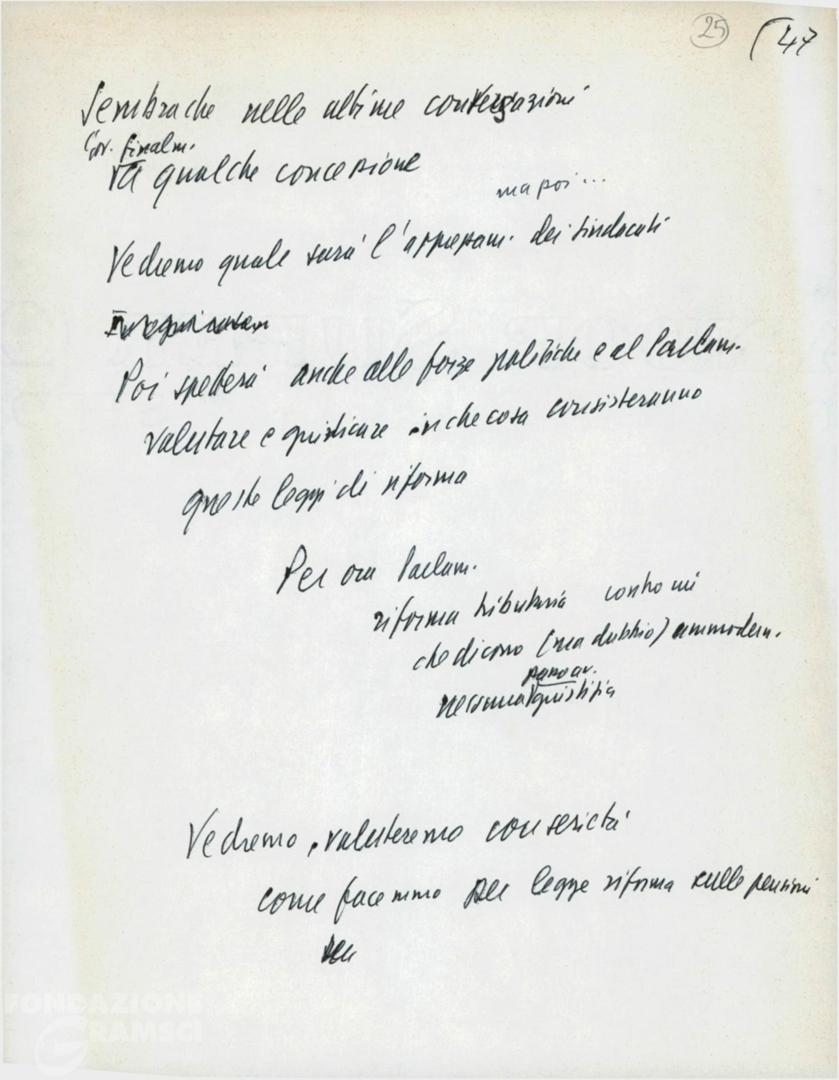 25 (47
Sembra che nelle ultime conversazioni
Gov. finalm.
fa qualche concessione
ma poi...
Vedremo quale sarà l'apprezzam. dei sindacati
Poi spetterà anche alle forze politiche e al Parlam.
valutare e giudicare in che cosa consisteranno
queste leggi di riforma
Per ora Parlam.
riforma tributaria contro cui
che dicono (ma dubbio) ammodern.
passo av.
nessuna giustizia
Vedremo, valuteremo con serietà
come facemmo per legge riforma sulle pensioni
FONDAZIONE
GRAMSCI